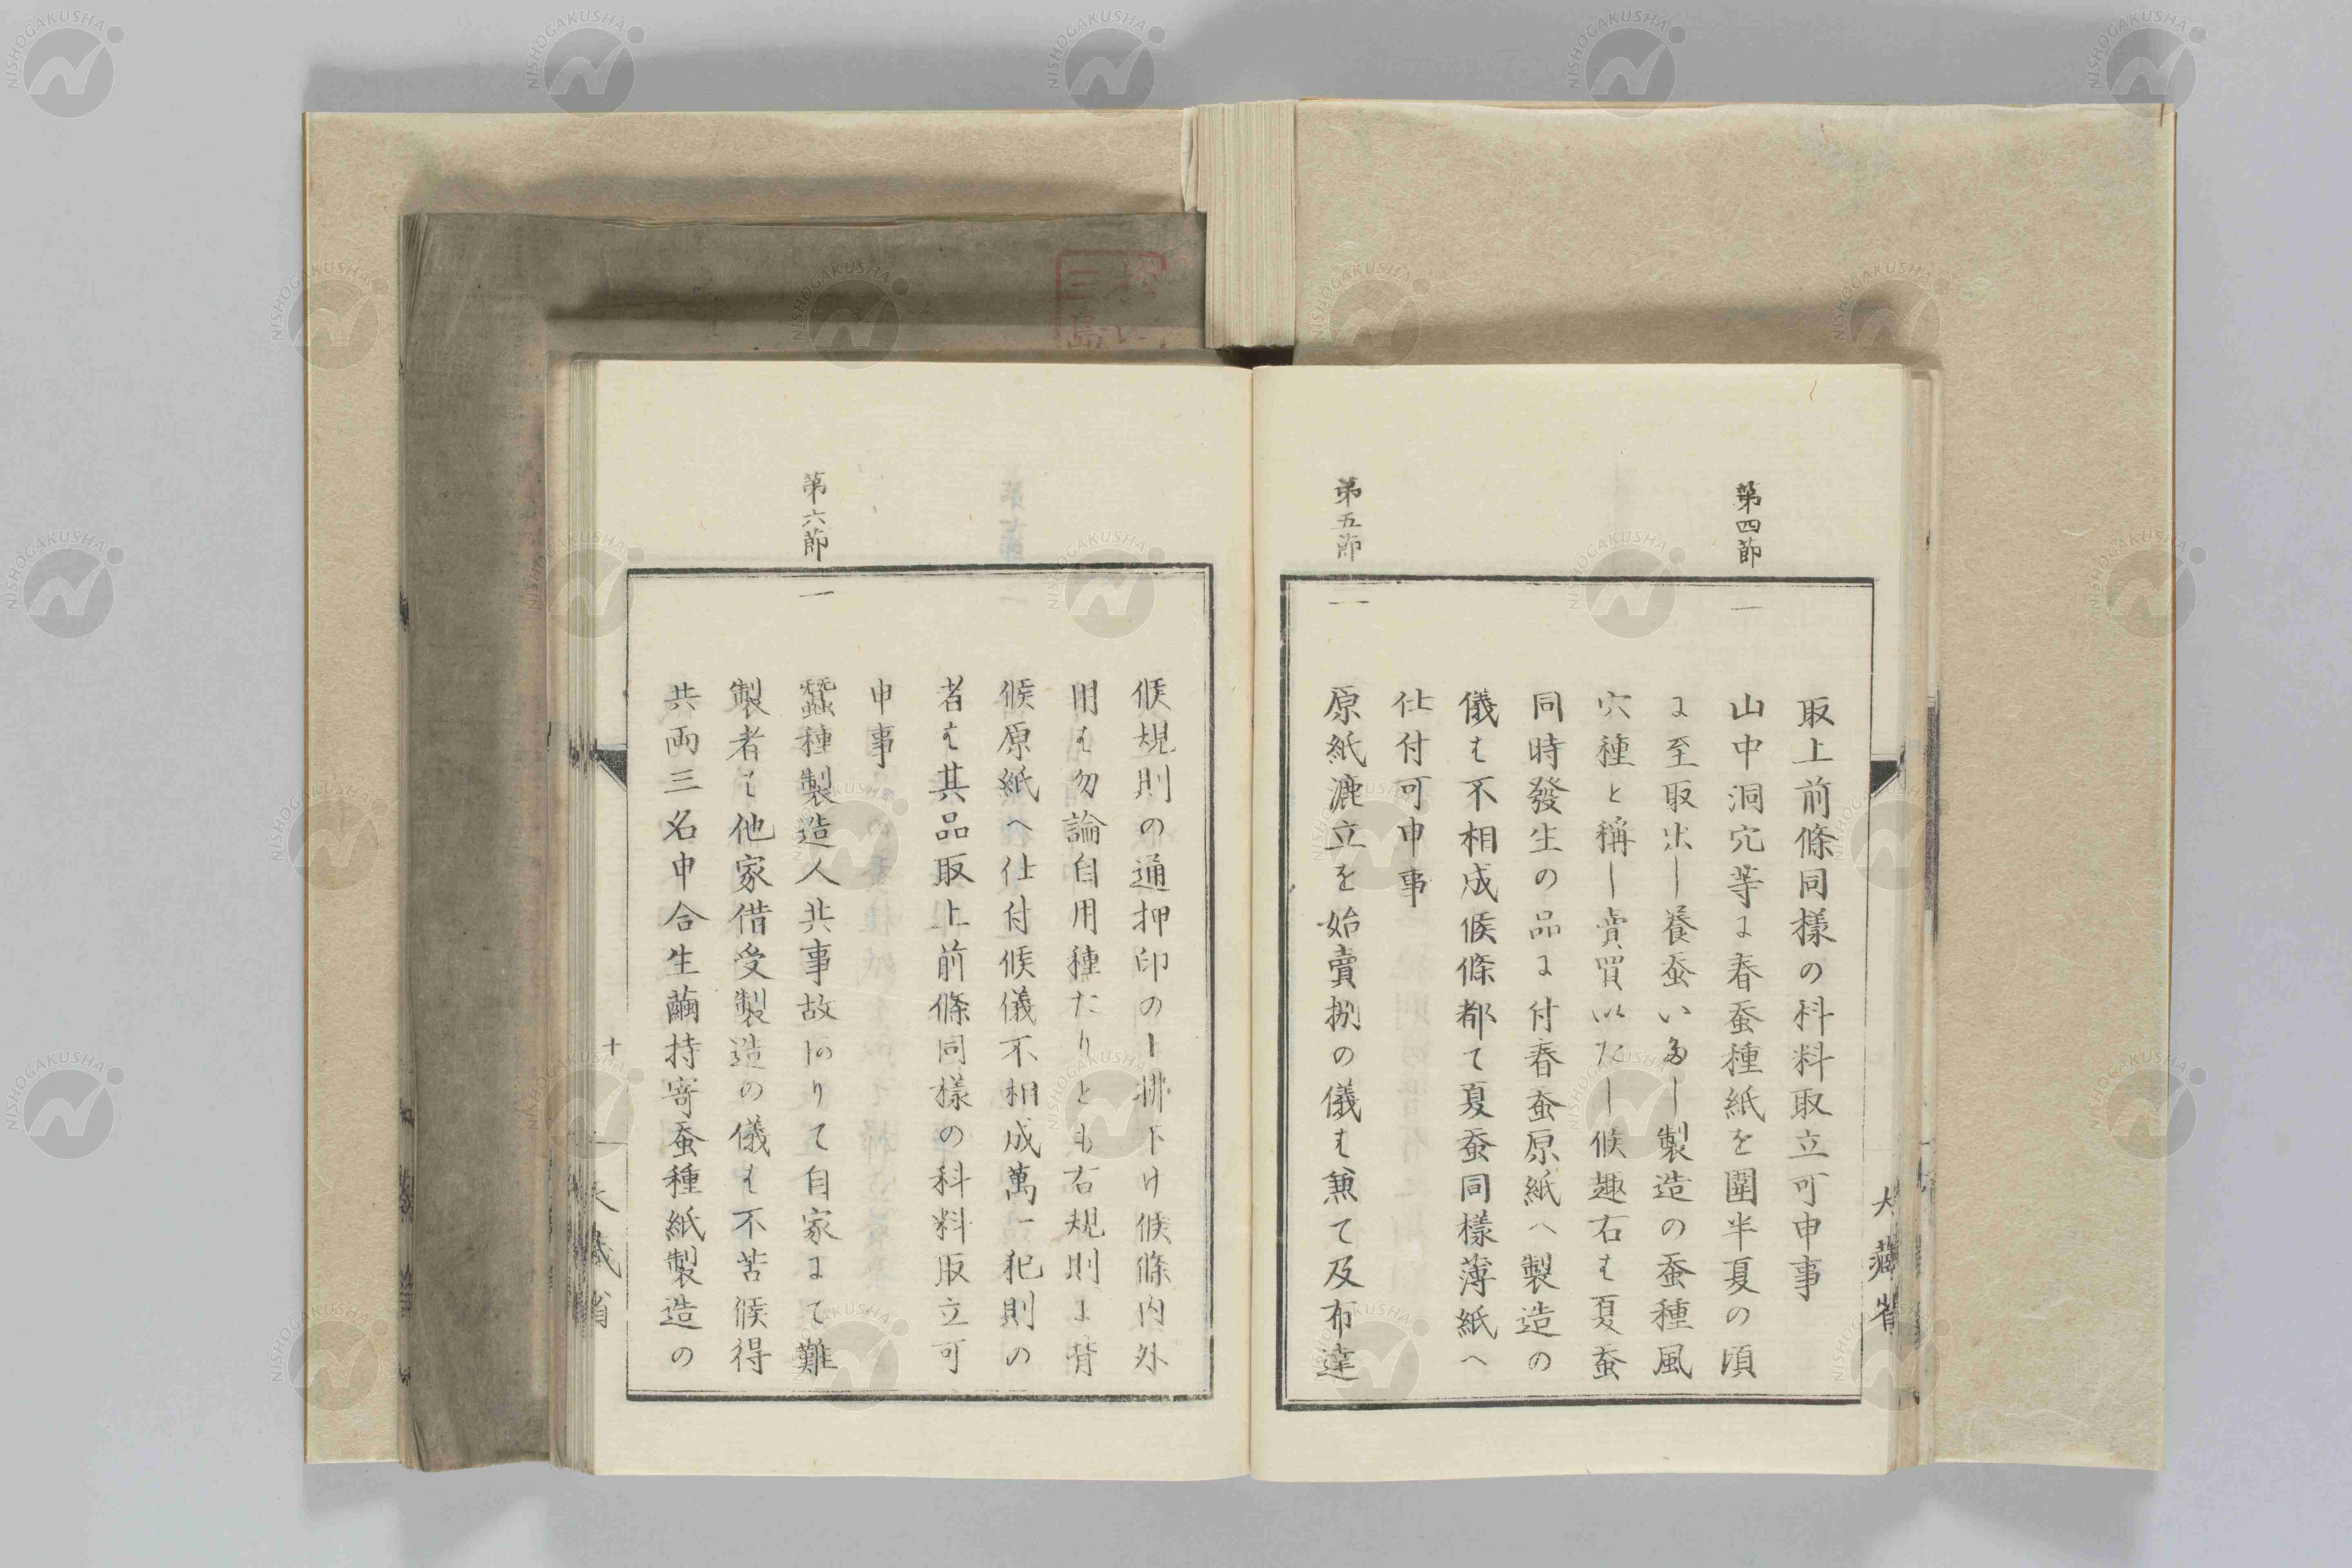 取上前條同様の科料取立可申事
第四節
一
山中洞穴等に春蚕種紙を圍半夏の頃
に至取出し養蚕いたし製造の蚕種風
穴種と稱し賣買いたし候趣右は夏蚕
同時發生の品に付春蚕原紙へ製造の
儀は不相成候條都て夏蚕同樣薄紙へ
仕付可申事
第五節
一
原紙漉立を始賣捌の儀は兼て及布達
大藏省
候規則の通押印の上拂下け候條内外
用は勿論自用種たりとも右規則に背
候原紙へ仕付候儀不相成萬一犯則の
者は其品取上前條同樣の科料取立可
申事
第六節
一
蠶種製造人共事故ありて自家にて難
製者は他家借受製造の儀は不苦候得
共両三名申合生繭持寄蚕種紙製造の
十
大藏省
三島
NISHOGAKUSHA